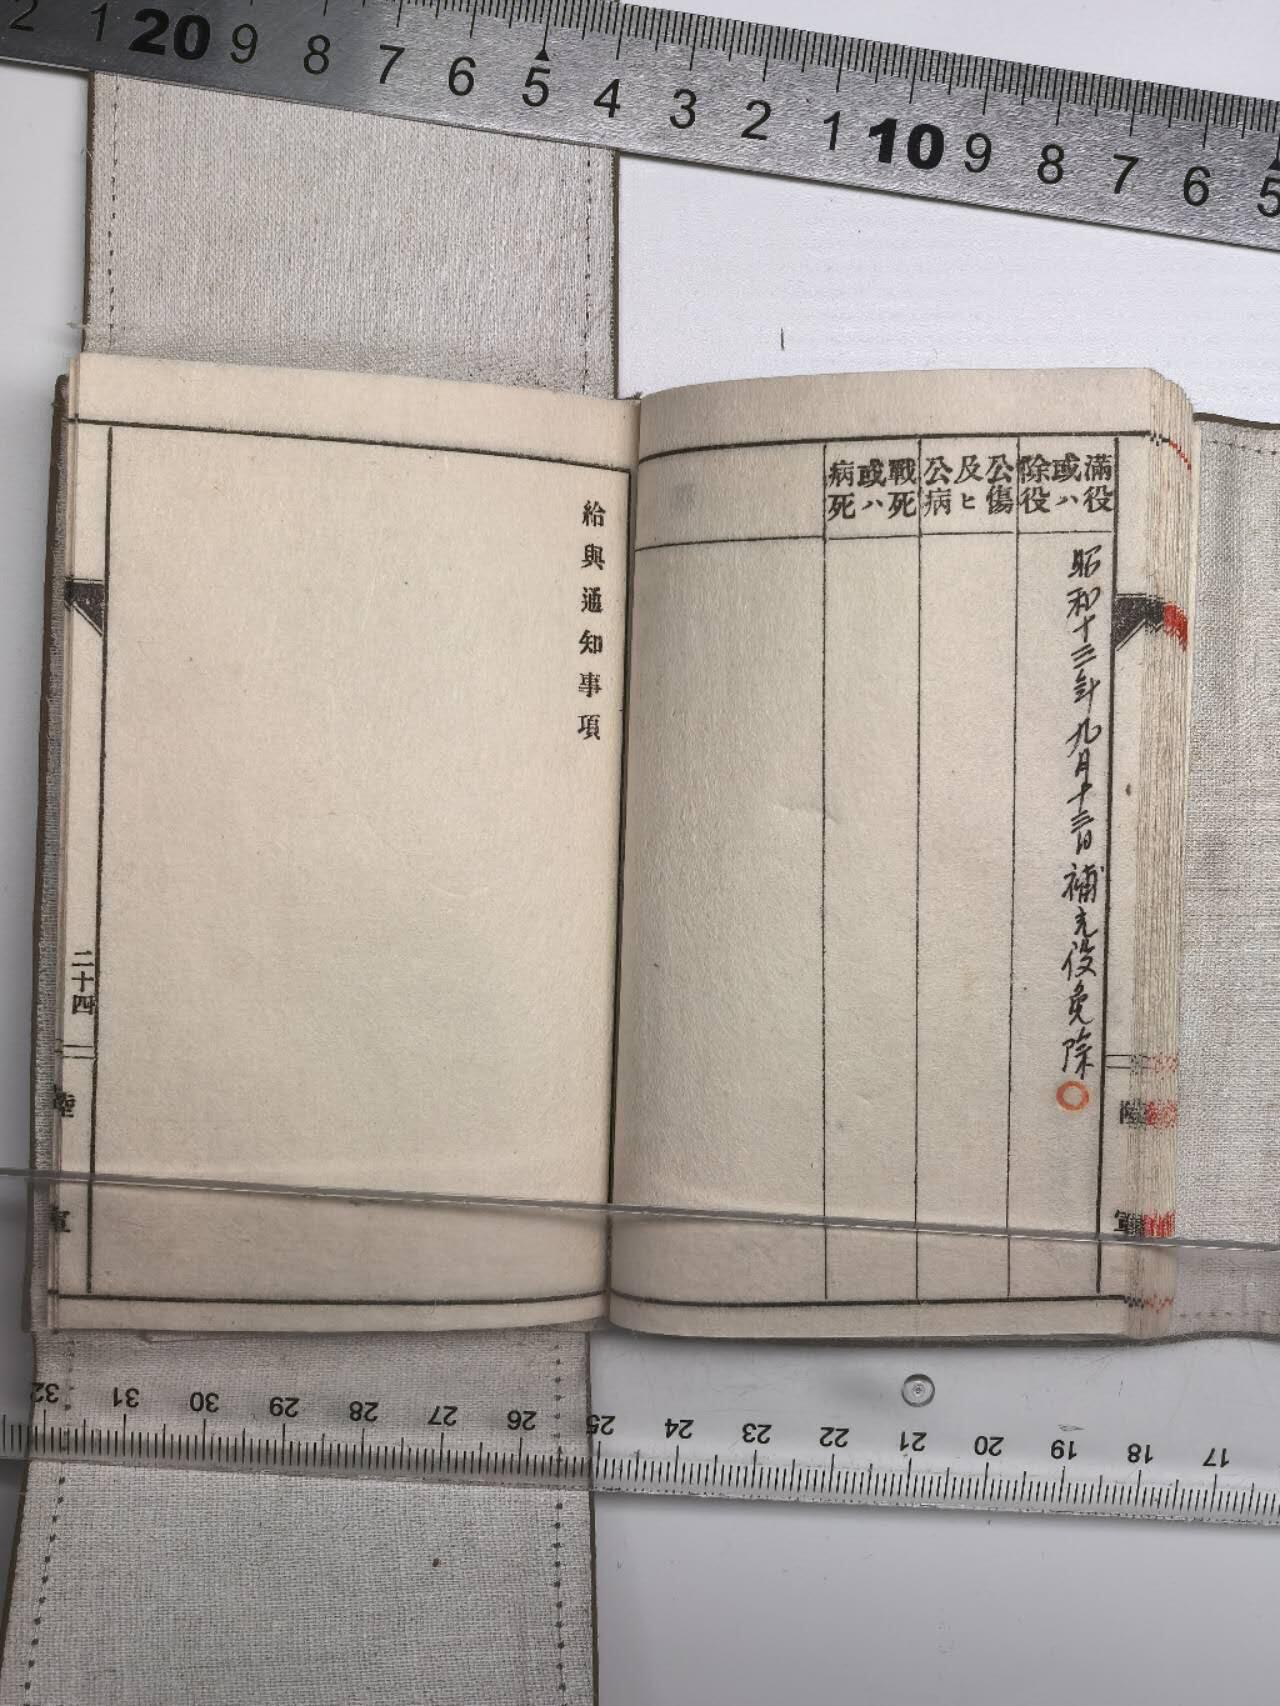 2 1 20 9 8 7 6 5 4 3 2 1 10 9 8 7 6 5
滿役或ハ除役
昭和十三年九月十三日補充役免除
公傷及ヒ公病
戰死或ハ病死
陸軍
給與通知事項
二十四
陸軍
32 31 30 29 28 27 26 25 24 23 22 21 20 19 18 17